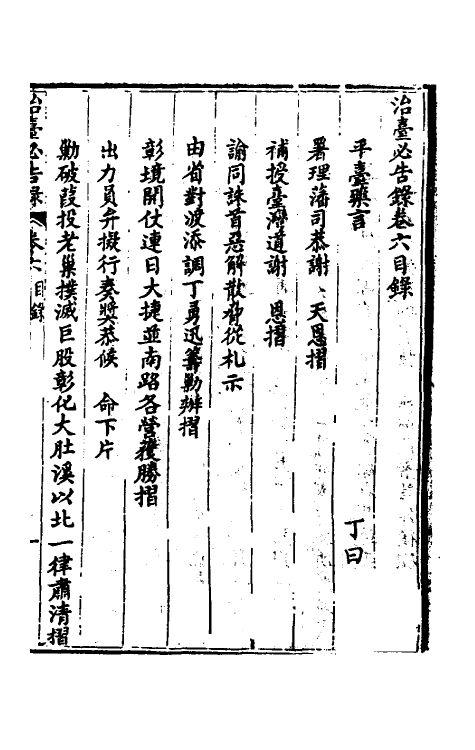 治臺必告錄卷六目錄
平臺藥言 丁曰
署理藩司恭謝 天恩摺
補授臺灣道謝 恩摺
諭同誅首惡解散脅從札示
由省對渡添調丁勇迅籌勦辦摺
彰境開仗連日大捷並南路各營獲勝摺
出力員弁擬行奏獎恭候 命下片
勦破葭投老巢撲滅巨股彰化大肚溪以北一律肅清摺
治臺必告錄 卷六目錄 一